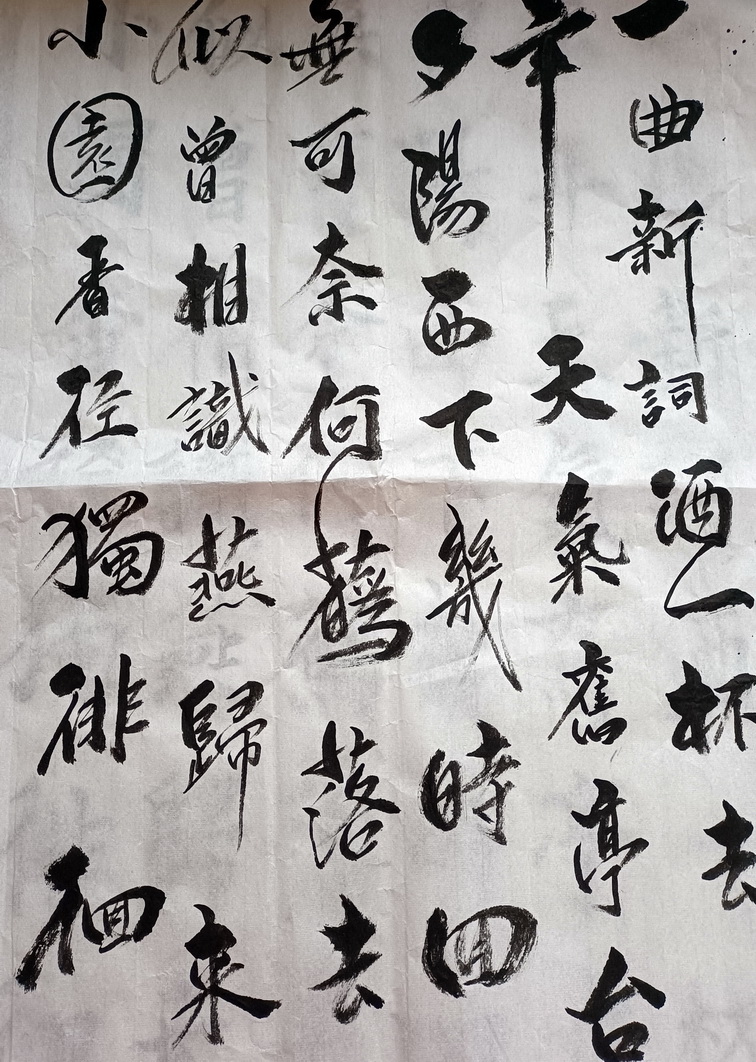 一曲新詞酒一杯去
年天氣舊亭台
夕陽西下幾時回
無可奈何蘤落去
似曾相識燕歸来
小園香径獨徘徊